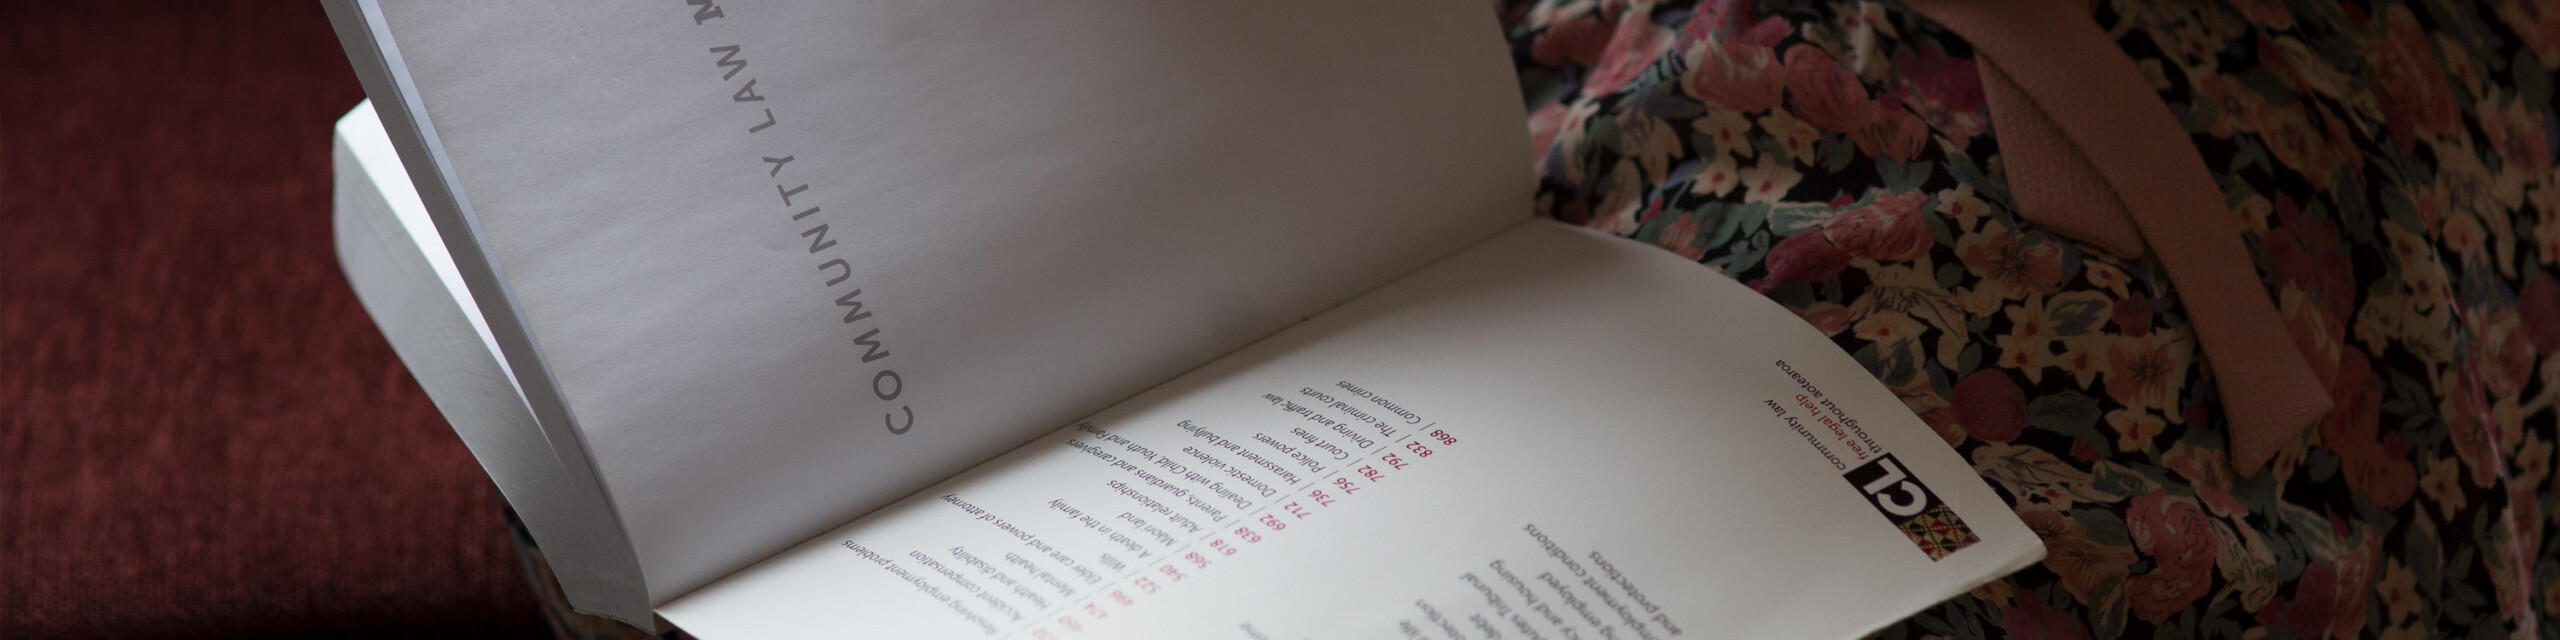 COMMUNITY LAW M
life
debt
Tribunal
and housing
employed
conditions
and protections
Resolving employment problems
Accident compensation
460 | Health and disability
474 | Mental health
496 | Elder care and powers of attorney
522 | Wills
540 | A death in the family
568 | Māori land
618 | Adult relationships
638 | Parents, guardians and caregivers
692 | Dealing with Child, Youth and Family
712 | Domestic violence
736 | Harassment and bullying
756 | Police powers
782 | Court fines
792 | Driving and traffic law
832 | The criminal courts
868 | Common crimes
CL
community law
free legal help
throughout aotearoa